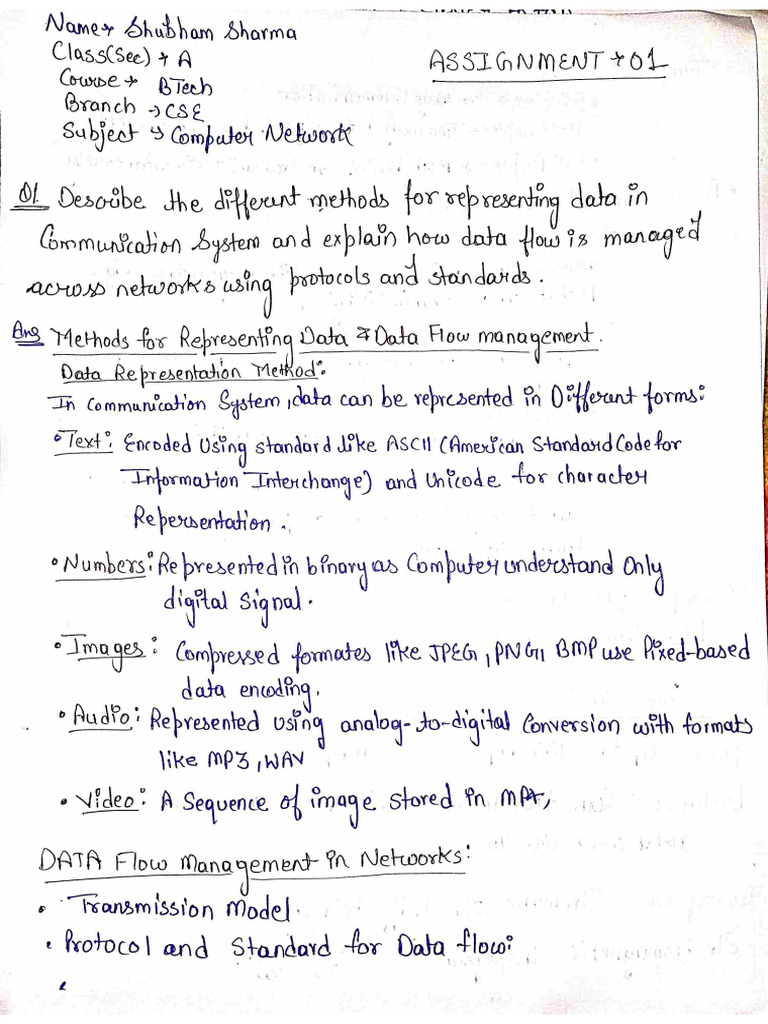 Name → Shubham Sharma
Class(Sec) → A
ASSIGNMENT → 01
Course → BTech
Branch → CSE
Subject → Computer Network
Q1. Describe the different methods for representing data in
Communication System and explain how data flow is managed
across networks using protocols and standards.
Ans Methods for Representing Data & Data Flow management.
Data Representation Method:
In Communication System, data can be represented in Different forms:
• Text: Encoded Using standard like ASCII (American Standard Code for
Information Interchange) and Unicode for character
Repersentation.
• Numbers: Represented in binary as Computer understand Only
digital Signal.
• Images: Compressed formates like JPEG, PNG, BMP use Pixed-based
data encoding.
• Audio: Represented Using analog-to-digital Conversion with formats
like MP3, WAV
• Video: A Sequence of image stored in MP4,
DATA Flow Management in Networks:
• Transmission Model.
• Protocol and Standard for Data flow: